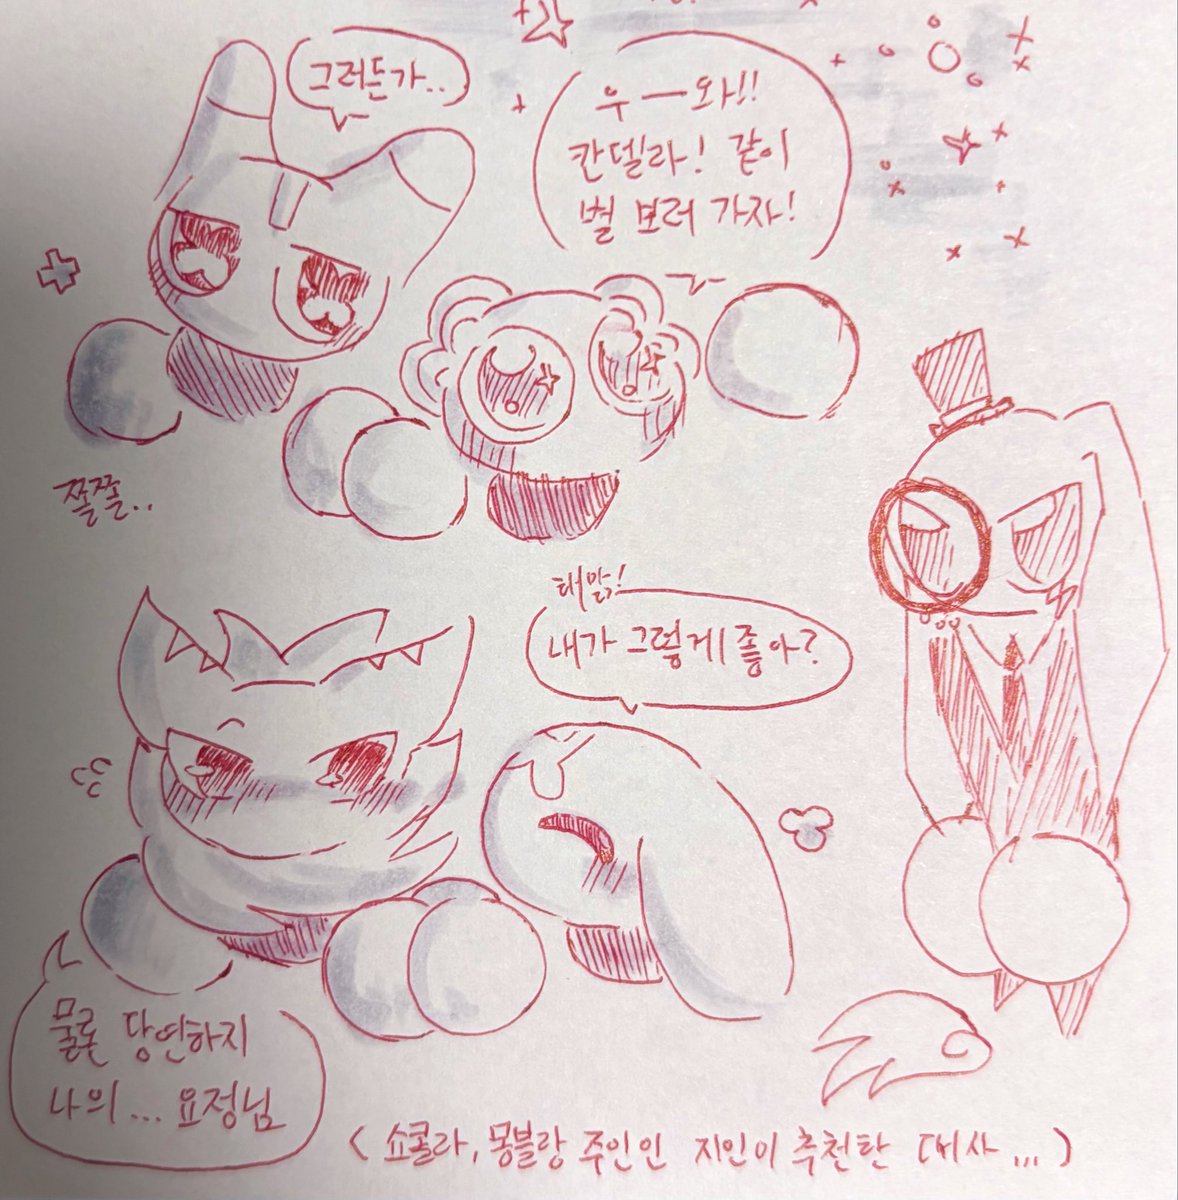 그러든가..
우ㅡ와!!
칸델라! 같이
별 보러 가자!
쫄쫄..
태맑!
내가 그렇게 좋아?
물론 당연하지
나의... 요정님
(쇼콜라, 몽블랑 주인인 지인이 추천한 대사...)